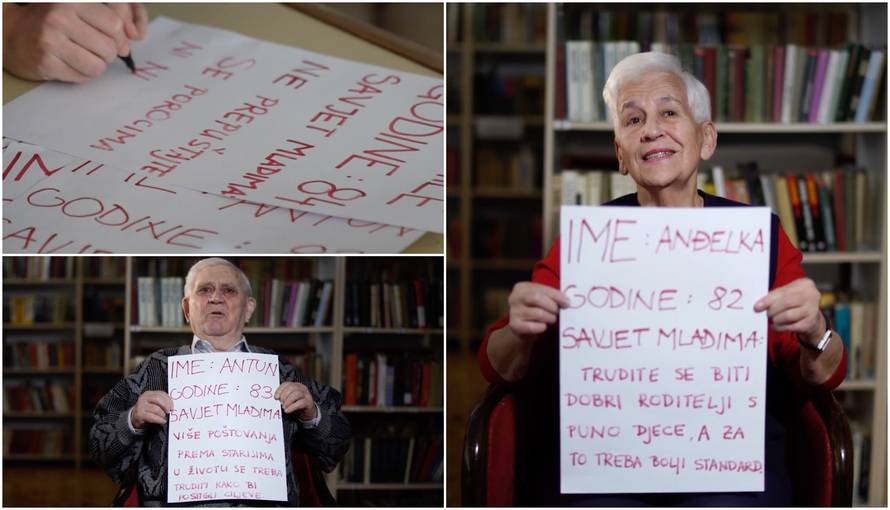 GODINE: 84
SAVJET MLADIMA:
NE PREPUŠTAJTE
SE POROCIMA
NI N
GODINE
SAVJE
IME: ANTUN
GODINE: 83
SAVJET MLADIMA
VIŠE POŠTOVANJA
PREMA STARIJIMA
U ŽIVOTU SE TREBA
TRUDITI KAKO BI
POSTIGLI CILJEVE
IME: ANĐELKA
GODINE: 82
SAVJET MLADIMA:
TRUDITE SE BITI
DOBRI RODITELJI S
PUNO DJECE, A ZA
TO TREBA BOLJI STANDARD.